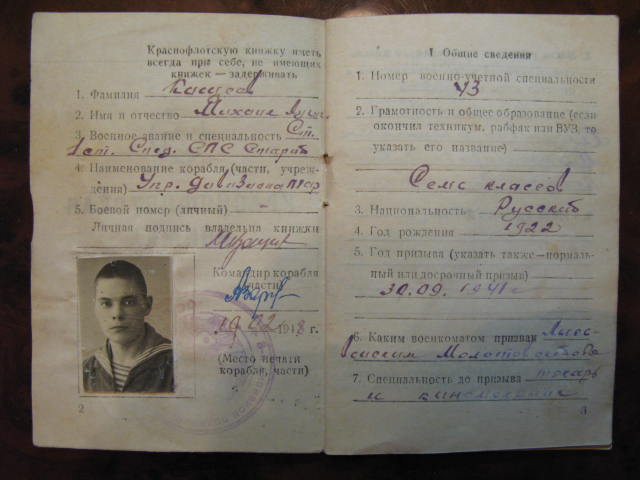 Краснофлотскую книжку иметь
всегда при себе, не имеющих
книжек — задерживать
1. Фамилия
2. Имя и отчество Михаил
3. Военное звание и специальность Ст.
1 ст. Спец. СПС Старш
4. Наименование корабля (части, учреж-
дения) Упр. Дивизиона
5. Боевой номер (личный) —
Личная подпись владельца книжки
Командир корабля
(части)
19 02 1948 г.
(Место печати
корабля, части)
2
I Общие сведения
1. Номер военно-учетной специальности
43
2. Грамотность и общее образование (если
окончил техникум, рабфак или ВУЗ, то
указать его название)
Семь классов
3. Национальность Русский
4. Год рождения 1922
5. Год призыва (указать также—нормаль-
ный или досрочный призыв)
30.09. 1941 г
6. Каким военкоматом призван Лысь-
венским Молотовской
7. Специальность до призыва токарь
и киномеханик
3